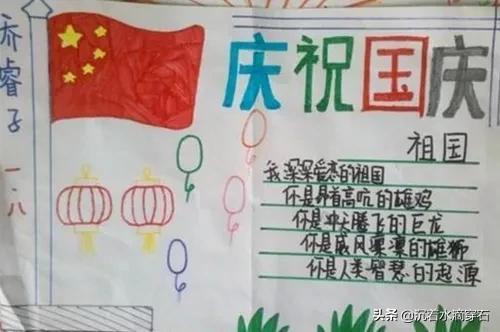 乔睿子 一八
庆祝国庆
祖国
我深深爱恋的祖国
你是昂首高吭的雄鸡
你是冲天腾飞的巨龙
你是威风凛凛的雄狮
你是人类智慧的起源
头条 @沉石水滴穿石